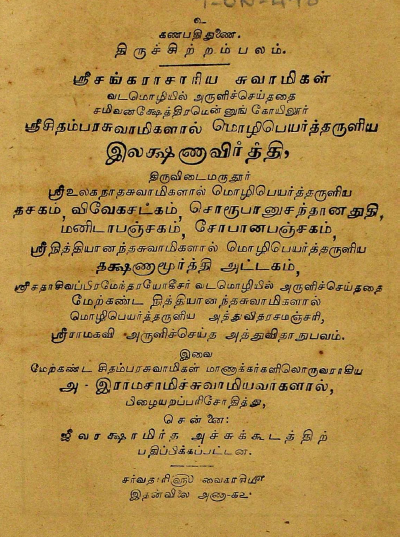 உ
கணபதிதுணை.
திருச்சிற்றம்பலம்.
ஸ்ரீசங்கராசாரிய சுவாமிகள்
வடமொழியில் அருளிச்செய்ததை
சமீவனக்ஷேத்திரமென்னுங் கோயிலூர்
ஸ்ரீசிதம்பரசுவாமிகளால் மொழிபெயர்த்தருளிய
இலக்ஷணாவிர்த்தி,
திருவிடைமருதூர்
ஸ்ரீஉலகநாதசுவாமிகளால் மொழிபெயர்த்தருளிய
தசகம், விவேகசட்கம், சொரூபானுசந்தானதுதி,
மனிடாபஞ்சகம், சோபானபஞ்சகம்,
ஸ்ரீநித்தியானந்தசுவாமிகளால் மொழிபெயர்த்தருளிய
தக்ஷணாமூர்த்தி அட்டகம்,
ஸ்ரீசதாசிவப்பிரமேந்திரயோகீசர் வடமொழியில் அருளிச்செய்ததை
மேற்கண்ட நித்தியானந்தசுவாமிகளால்
மொழிபெயர்த்தருளிய அத்துவிதரசமஞ்சரி,
ஸ்ரீராமகவி அருளிச்செய்த அத்துவிதாநுபவம்.
இவை
மேற்கண்ட சிதம்பரசுவாமிகள் மாணாக்கர்களிலொருவராகிய
அ - இராமசாமிச்சுவாமியவர்களால்,
பிழையறப்பரிசோதித்து,
சென்னை:
ஜீவரக்ஷாமிர்த அச்சுக்கூடத்திற்
பதிப்பிக்கப்பட்டன.
வைகாசிமீ
இதன்விலை அணா-